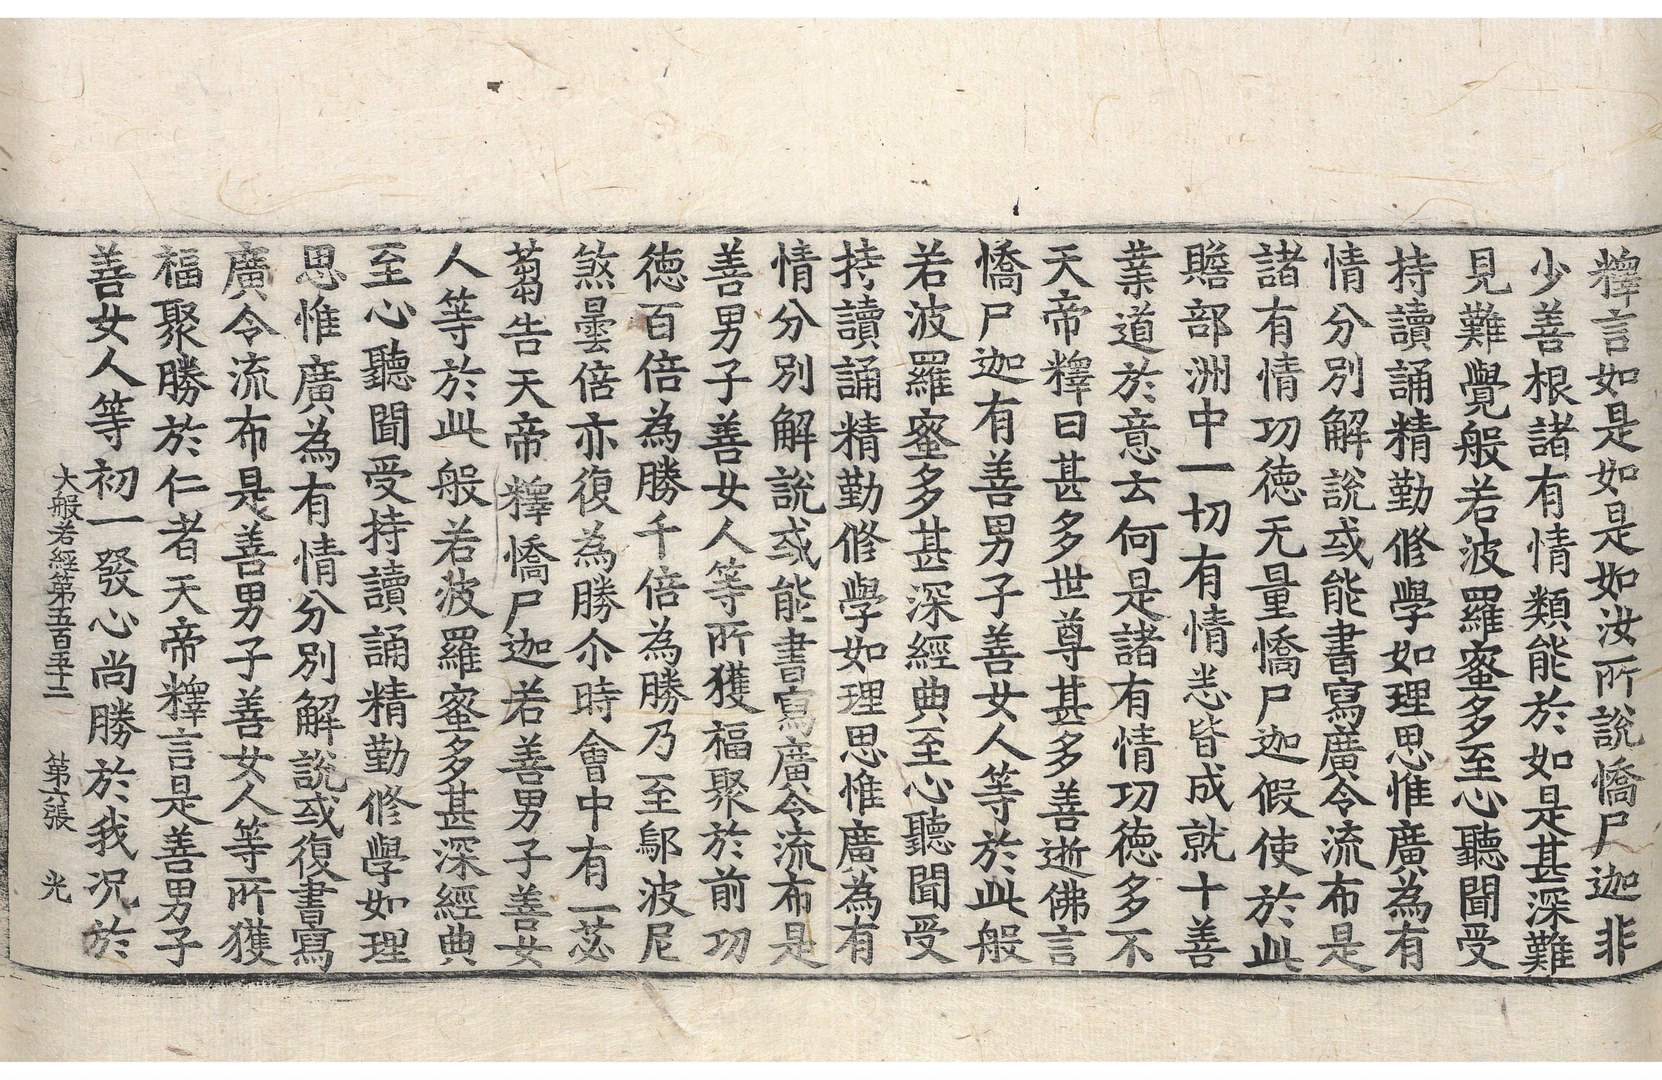 釋言如是如是如汝所說憍尸迦非
少善根諸有情類能於如是甚深難
見難覺般若波羅蜜多至心聽聞受
持讀誦精勤修學如理思惟廣為有
情分別解說或能書寫廣令流布是
諸有情功德无量憍尸迦假使於此
贍部洲中一切有情悉皆成就十善
業道於意云何是諸有情功德多不
天帝釋曰甚多世尊甚多善逝佛言
憍尸迦有善男子善女人等於此般
若波羅蜜多甚深經典至心聽聞受
持讀誦精勤修學如理思惟廣為有
情分別解說或能書寫廣令流布是
善男子善女人等所獲福聚於前功
德百倍為勝千倍為勝乃至鄔波尼
煞曇倍亦復為勝尒時會中有一苾
芻告天帝釋憍尸迦若善男子善女
人等於此般若波羅蜜多甚深經典
至心聽聞受持讀誦精勤修學如理
思惟廣為有情分別解說或復書寫
廣令流布是善男子善女人等所獲
福聚勝於仁者天帝釋言是善男子
善女人等初一發心尚勝於我況於
大般若經第五百五十二 第張 光